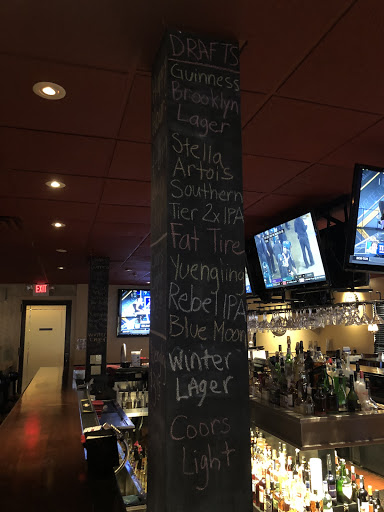 DRAFTS
Guinness
Brooklyn
Lager
Stella
Artois
Southern
Tier 2x IPA
Fat Tire
Yuengling
Rebel IPA
Blue Moon
Winter
Lager
Coors
Light
EXIT